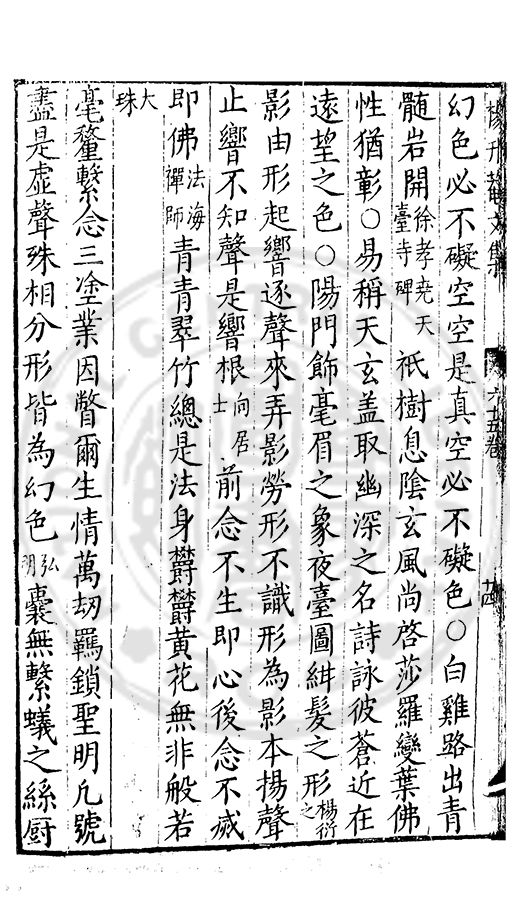 楊升菴文集 六十五卷 十四
幻色必不礙空空是真空必不礙色○白雞路出青
髓岩開徐孝尭天臺寺碑祇樹息陰玄風尚啓莎羅變葉佛
性猶彰○易稱天玄盖取幽深之名詩詠彼蒼近在
遠望之色○陽門飾毫眉之象夜臺圖紺髮之形楊衒之
影由形起響逐聲來弄影勞形不識形為影本揚聲
止響不知聲是響根向居士前念不生即心後念不滅
即佛法海禪師青青翠竹總是法身欝欝黄花無非般若
大珠
毫釐繫念三塗業因瞥爾生情萬劫羈鎖聖明凢號
盡是虚聲殊相分形皆為幻色弘明囊無繫蟻之絲厨